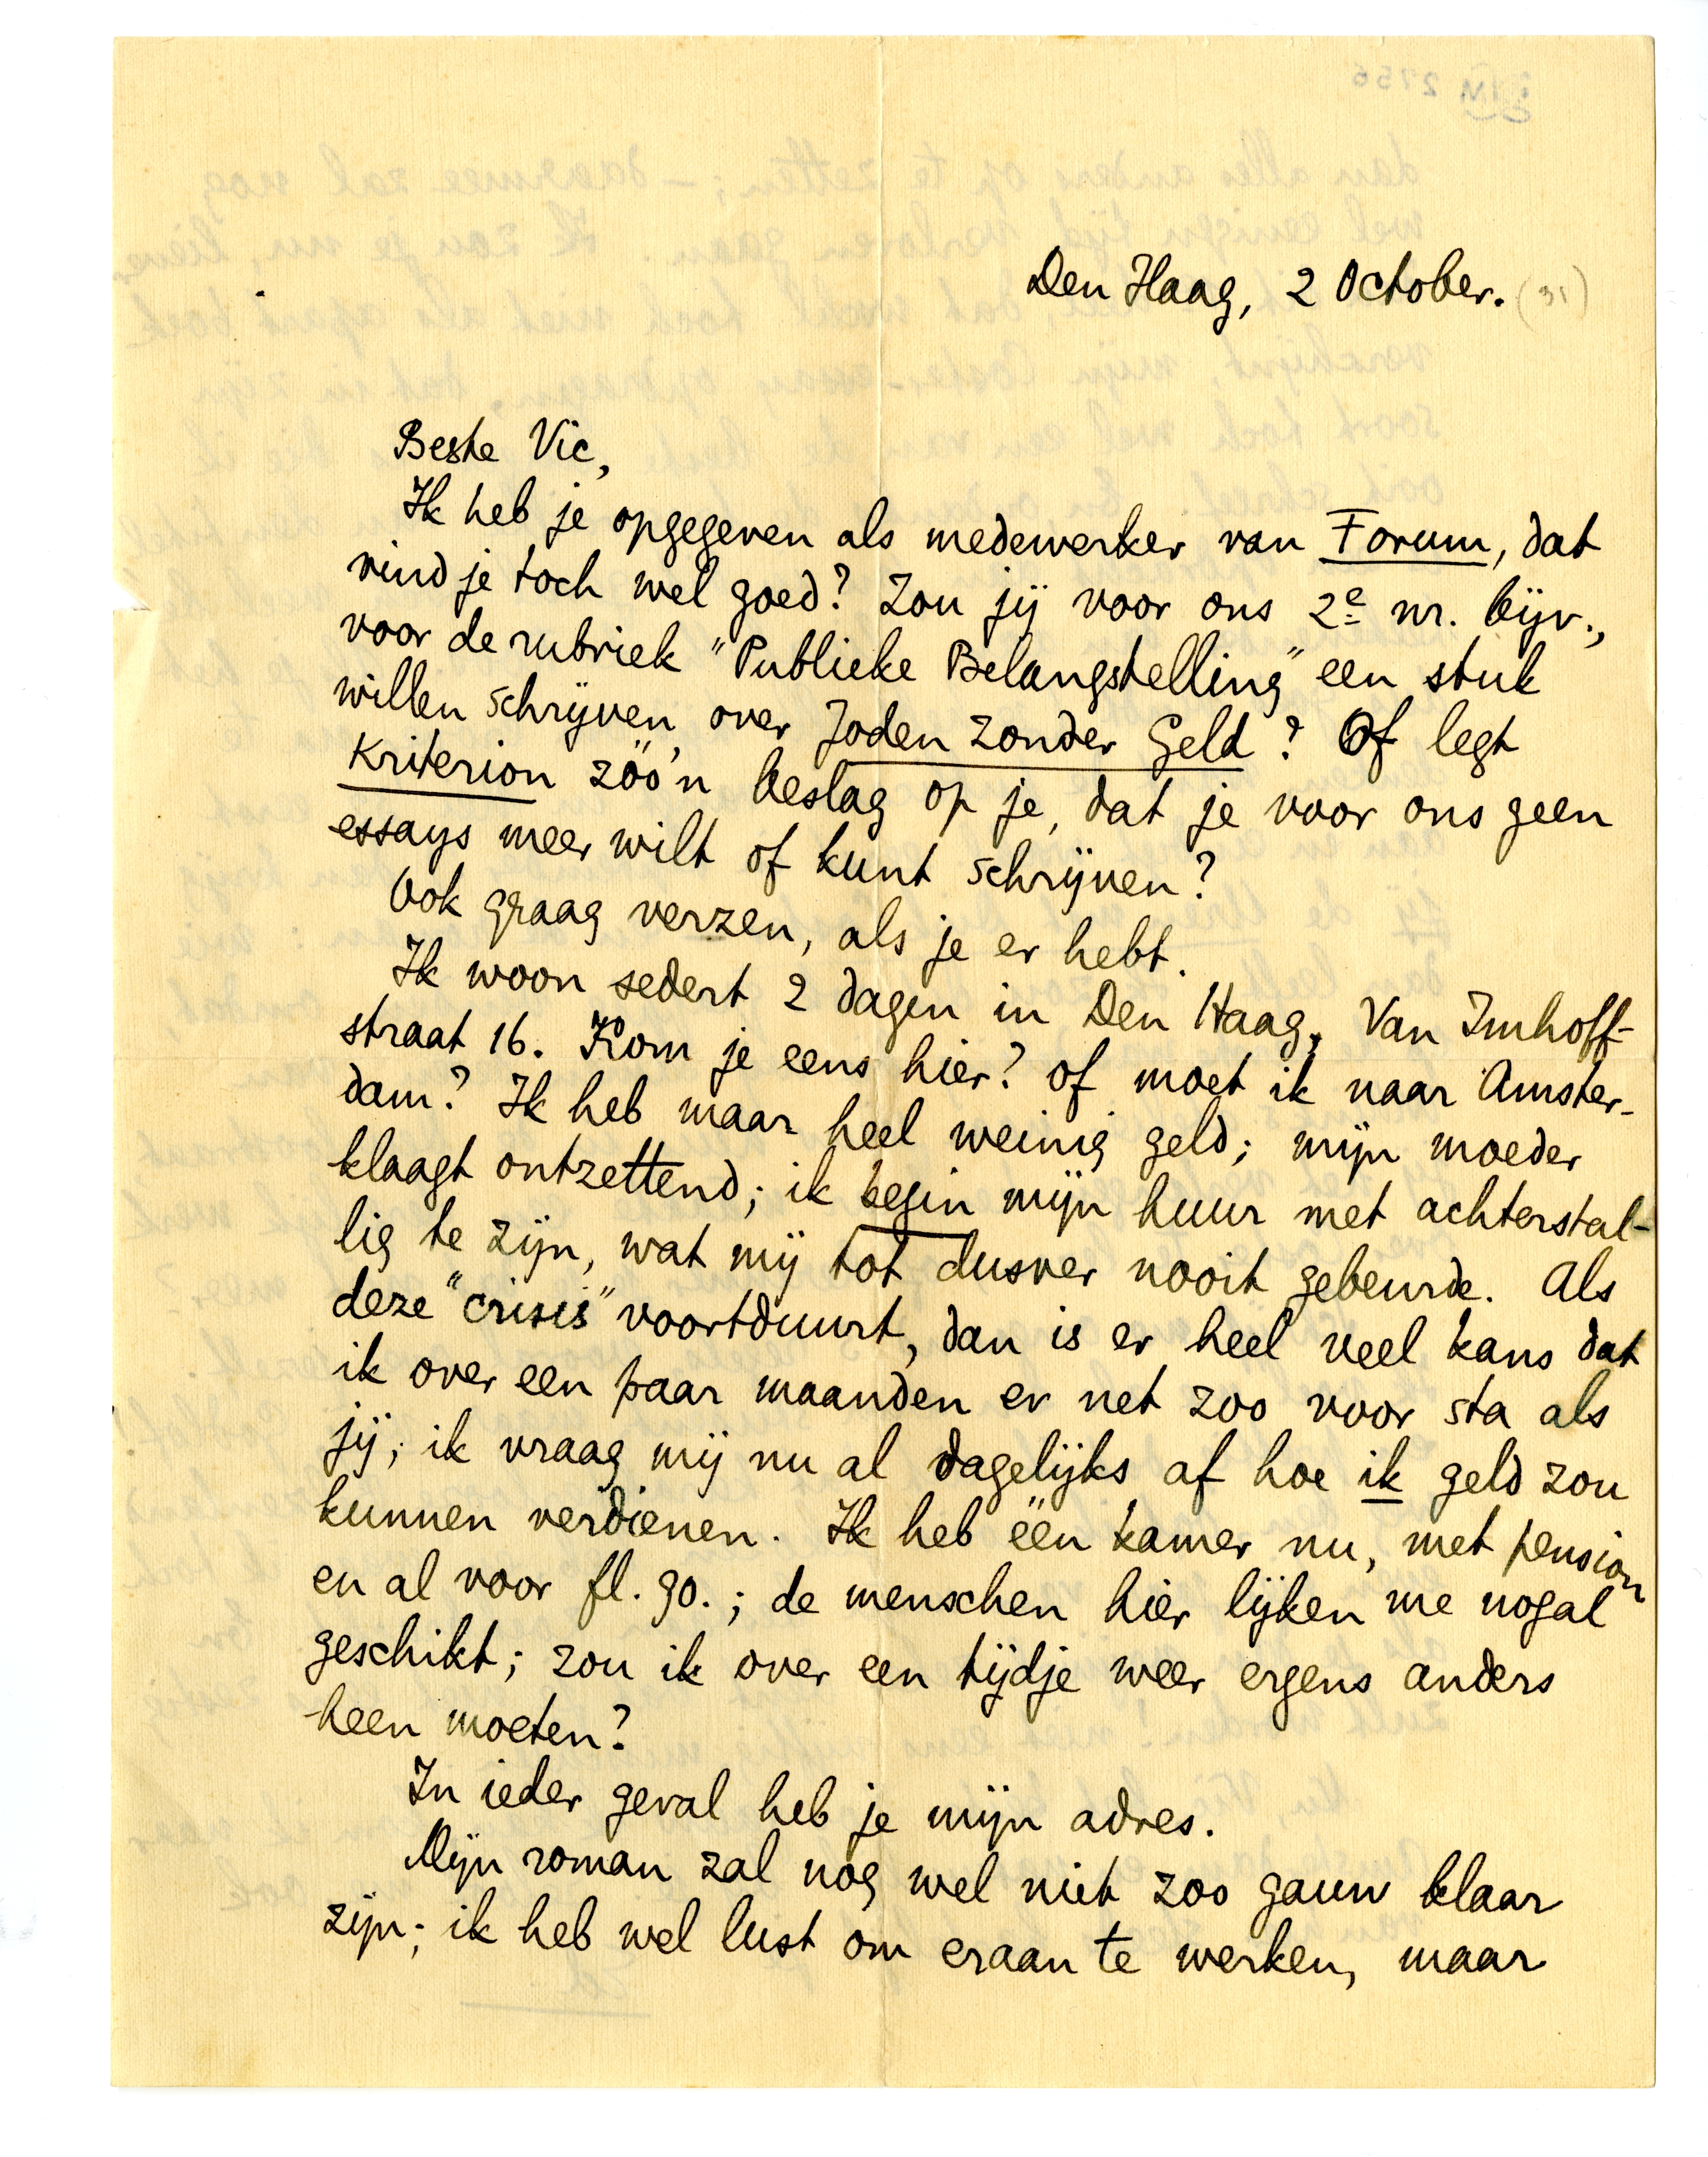 Den Haag, 2 October. (31)
Beste Vic,
Ik heb je opgegeven als medewerker van Forum, dat
vind je toch wel goed? Zou jij voor ons 2e nr. bijv.,
voor de rubriek "Publieke Belangstelling" een stuk
willen schrijven over Joden zonder Geld? Of legt
Kriterion zóó'n beslag op je, dat je voor ons geen
essays meer wilt of kunt schrijven?
Ook graag verzen, als je er hebt.
Ik woon sedert 2 dagen in Den Haag, Van Imhoff-
straat 16. Kom je eens hier? of moet ik naar Amster-
dam? Ik heb maar heel weinig geld; mijn moeder
klaagt ontzettend; ik begin mijn huur met achterstal-
lig te zijn, wat mij tot dusver nooit gebeurde. Als
deze "crisis" voortduurt, dan is er heel veel kans dat
ik over een paar maanden er net zoo voor sta als
jij; ik vraag mij nu al dagelijks af hoe ik geld zou
kunnen verdienen. Ik heb één kamer nu, met pension
en al voor fl. 90.; de menschen hier lijken me nogal
geschikt; zou ik over een tijdje weer ergens anders
heen moeten?
In ieder geval heb je mijn adres.
Mijn roman zal nog wel niet zoo gauw klaar
zijn; ik heb wel lust om eraan te werken, maar